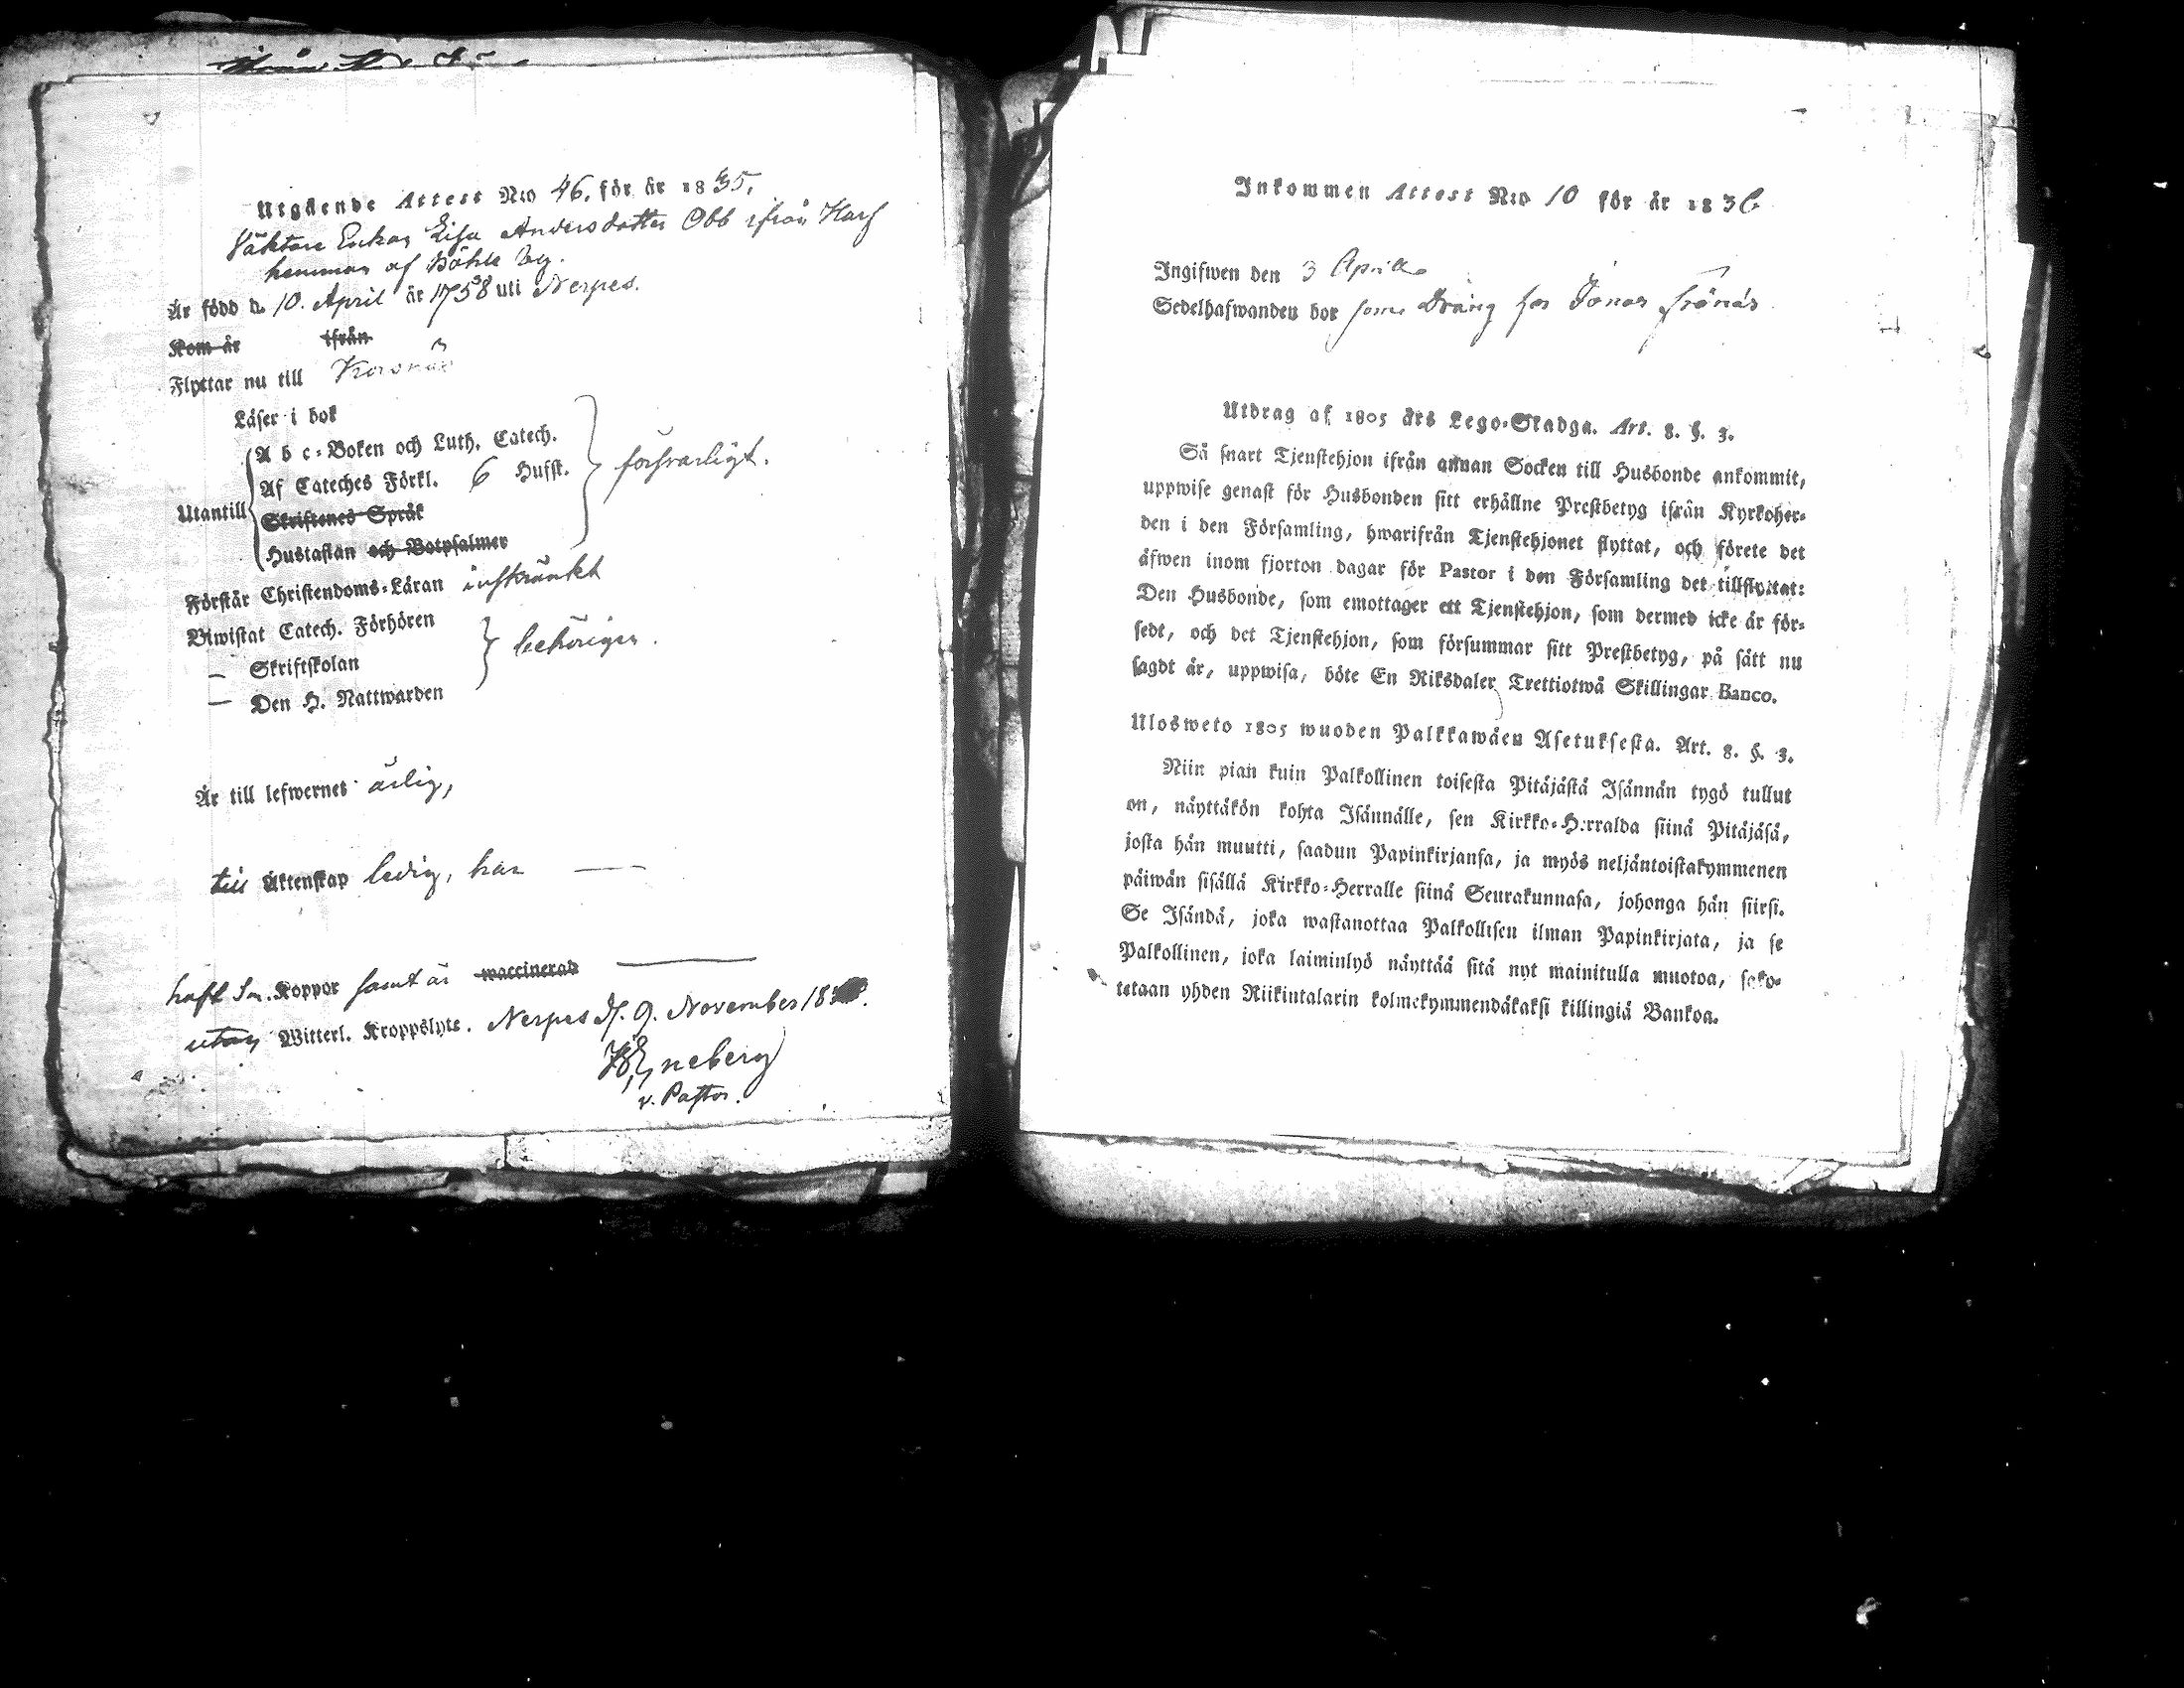 Utgående Attest N:o 46. för år 1835,
Enkan Lisa Andersdotter Obb ifrån Harf
hemman af Böhle by.
Är född d. 10. April år 1758 uti Nerpes.
Kom år ifrån
Flyttar nu till Korsnäs
Läser i bok
A b c-Boken och Luth. Catech.
Af Cateches Förkl. 6 Hufst. försvarligt.
Utantill Skriftenes Språk
Hustaflan och Botpsalmer
Förstår Christendoms-Läran inskränkt
Biwistat Catech. Förhören
— Skriftskolan behörigen.
— Den H. Nattwarden
Är till lefwernet ärlig,
till Äktenskap ledig, har —
haft Sm. Koppor samt är waccinerad —
utan Witterl. Kroppslyte. Nerpes d. 9. November 18
neberg
v. Pastor.
Inkommen Attest N:o 10 för år 1836
Ingifwen den 3 Aprill
Sedelhafwanden bor som Dräng hos Jonas
Utdrag af 1805 års Lego-Stadga. Art. 8. §. 3.
Så snart Tjenstehjon ifrån annan Socken till Husbonde ankommit,
uppwise genast för Husbonden sitt erhållne Prestbetyg ifrån Kyrkoher-
den i den Församling, hwarifrån Tjenstehjonet flyttat, och förete det
äfwen inom fjorton dagar för Pastor i den Församling det tillflyttat:
Den Husbonde, som emottager ett Tjenstehjon, som dermed icke är för-
sedt, och det Tjenstehjon, som försummar sitt Prestbetyg, på sätt nu
sagdt är, uppwisa, böte En Riksdaler Trettiotwå Skillingar Banco.
Ulosweto 1805 wuoden Palkkawäen Asetuksesta. Art. 8. §. 3.
Niin pian kuin Palkollinen toisesta Pitäjästä Isännän tygö tullut
on, näyttäkön kohta Isännälle, sen Kirkko-Herralda siinä Pitäjäsä,
josta hän muutti, saadun Papinkirjansa, ja myös neljäntoistakymmenen
päiwän sisällä Kirkko-Herralle siinä Seurakunnasa, johonga hän siirsi.
Se Isändä, joka wastanottaa Palkollisen ilman Papinkirjata, ja se
Palkollinen, joka laiminlyö näyttää sitä nyt mainitulla muotoa, sako-
tetaan yhden Riikintalarin kolmekymmendäkaksi killingiä Bankoa.